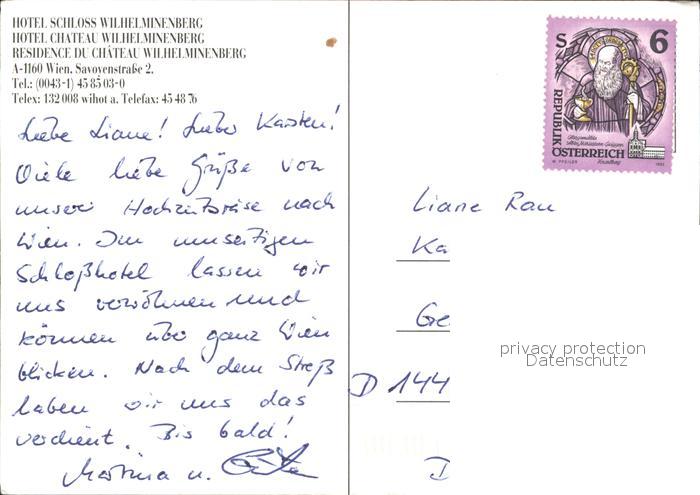 HOTEL SCHLOSS WILHELMINENBERG
HOTEL CHATEAU WILHELMINENBERG
RESIDENCE DU CHÂTEAU WILHELMINENBERG
A-1160 Wien, Savoyenstraße 2.
Tel.: (0043-1) 45 85 03-0
Telex: 132 008 wihot a. Telefax: 45 48 76
Liebe Liane! Lieber Karsten!
Viele liebe Grüße von
unserer Hochzeitsreise nach
Wien. Im umseitigen
Schloßhotel lassen wir
uns verwöhnen und
können über ganz Wien
blicken. Nach dem Streß
haben wir uns das
verdient. Bis bald!
Martina u.
S 6
REPUBLIK
ÖSTERREICH
Liane Rau
Ka
Ge
D 144
D
privacy protection
Datenschutz